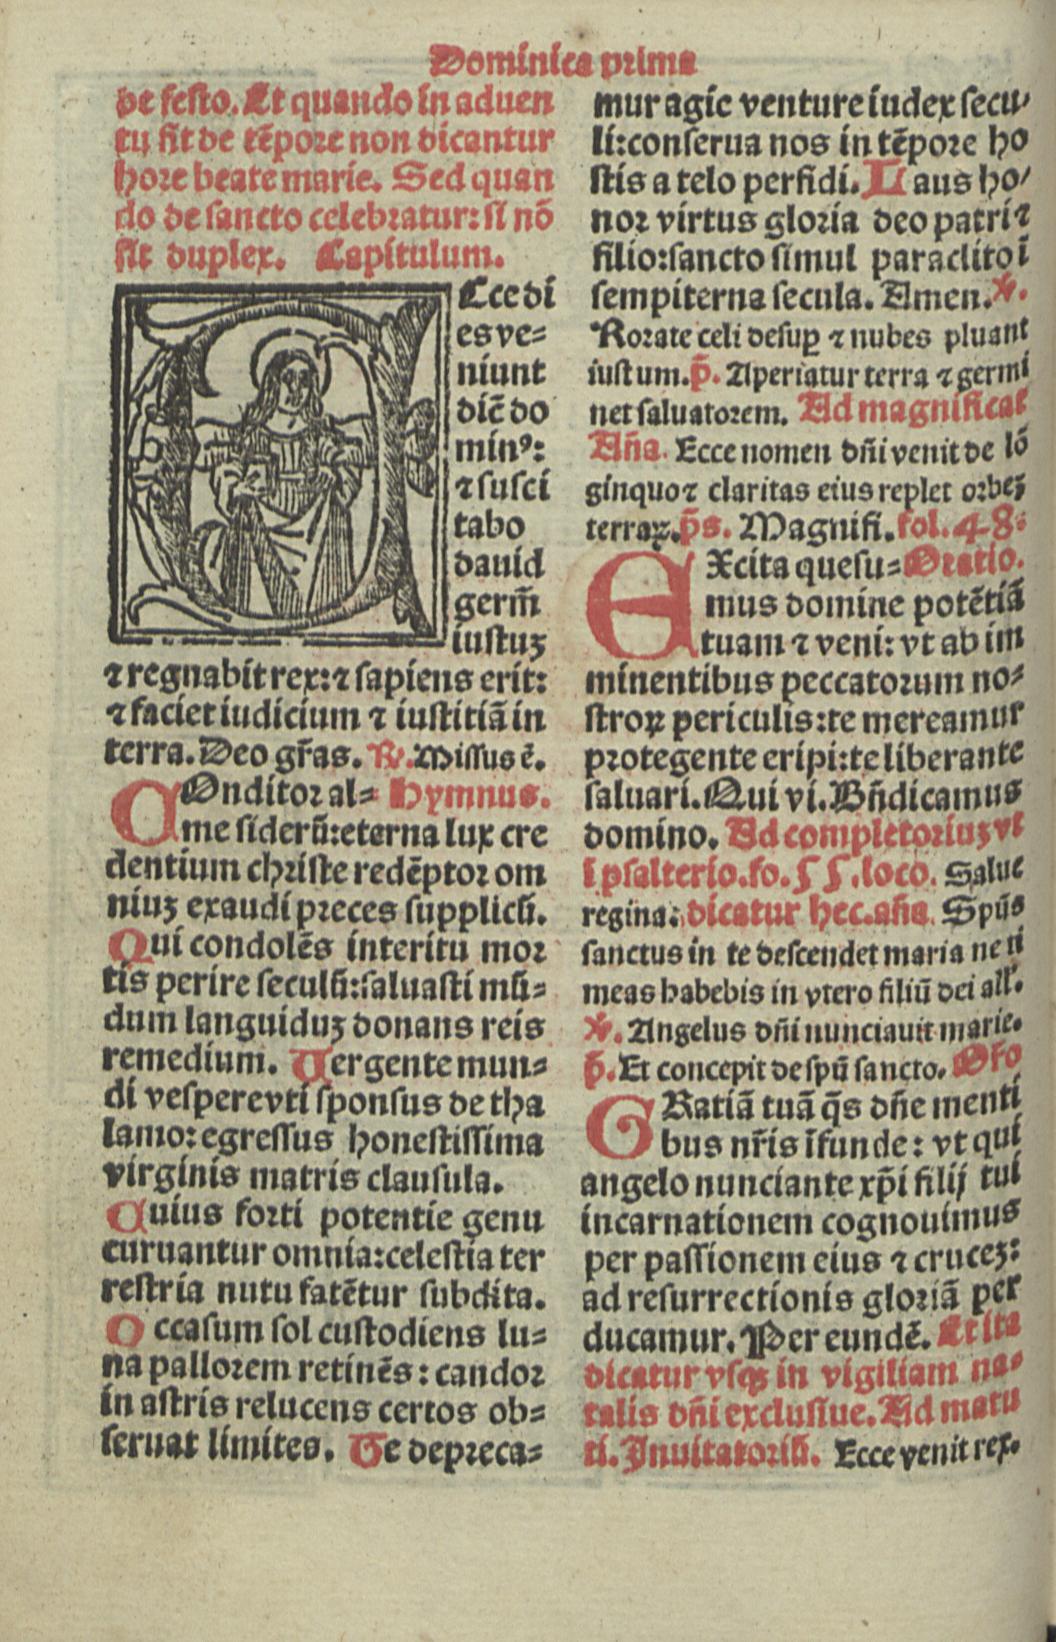 Dominica prima
de festo. Et quando in aduen
tu fit de tēpore non dicantur
hore beate marie. Sed quan
do de sancto celebratur: si nō
sit duplex. Capitulum.
Ecce di
es ve=
niunt
dic̄ do
minꝰ:
⁊ susci
tabo
dauid
germ̄
iustuꝫ
⁊ regnabit rex: ⁊ sapiens erit:
⁊ faciet iudicium ⁊ iustitiā in
terra. Deo gr̄as. ℟. Missus ē.
COnditor al= Hymnus.
me siderū: eterna lux cre
dentium christe redēptor om
niuꝫ exaudi preces supplicū.
Qui condolēs interitu mor
tis perire seculū: saluasti mū=
dum languiduꝫ donans reis
remedium. Uergente mun=
di vespere vti sponsus de tha
lamo: egressus honestissima
virginis matris clausula.
Cuius forti potentie genu
curuantur omnia: celestia ter
restria nutu fatētur subdita.
Occasum sol custodiens lu=
na pallorem retinēs: candor
in astris relucens certos ob=
seruat limites. Te depreca=
mur agie venture iudex secu/
li: conserua nos in tēpore ho
stis a telo perfidi. Laus ho/
nor virtus gloria deo patri ⁊
filio: sancto simul paraclito ī
sempiterna secula. Amen. ℣.
Rorate celi desuꝑ ⁊ nubes pluant
iustum. p̄. Aperiatur terra ⁊ germi
net saluatorem. Ad magnificat
Añа. Ecce nomen dn̄i venit de lō
ginquo ⁊ claritas eius replet orbeꝫ
terraꝝ. p̄s. Magnifi. fol. 48.
EXcita quesu= Oratio.
mus domine potētiā
tuam ⁊ veni: vt ab im
minentibus peccatorum no=
stroꝝ periculis: te mereamur
protegente eripi: te liberante
saluari. Qui vi. Bn̄dicamus
domino. Ad completoriuꝫ vt
ī psalterio. fo. 55. loco. Salue
regina: dicatur hec. añа. Spūs
sanctus in te descendet maria ne ti
meas habebis in vtero filiū dei all'.
℣. Angelus dn̄i nunciauit marie.
p̄. Et concepit de spū sancto. Oro
GRatiā tuā q̄s dn̄e menti
bus nr̄is īfunde: vt qui
angelo nunciante xp̄i filij tui
incarnationem cognouimus
per passionem eius ⁊ cruceꝫ:
ad resurrectionis gloriā per
ducamur. Per eundē. Et ita
dicatur vsqꝫ in vigiliam na=
talis dn̄i exclusiue. Ad matu
ti. Inuitatoriū. Ecce venit rex.